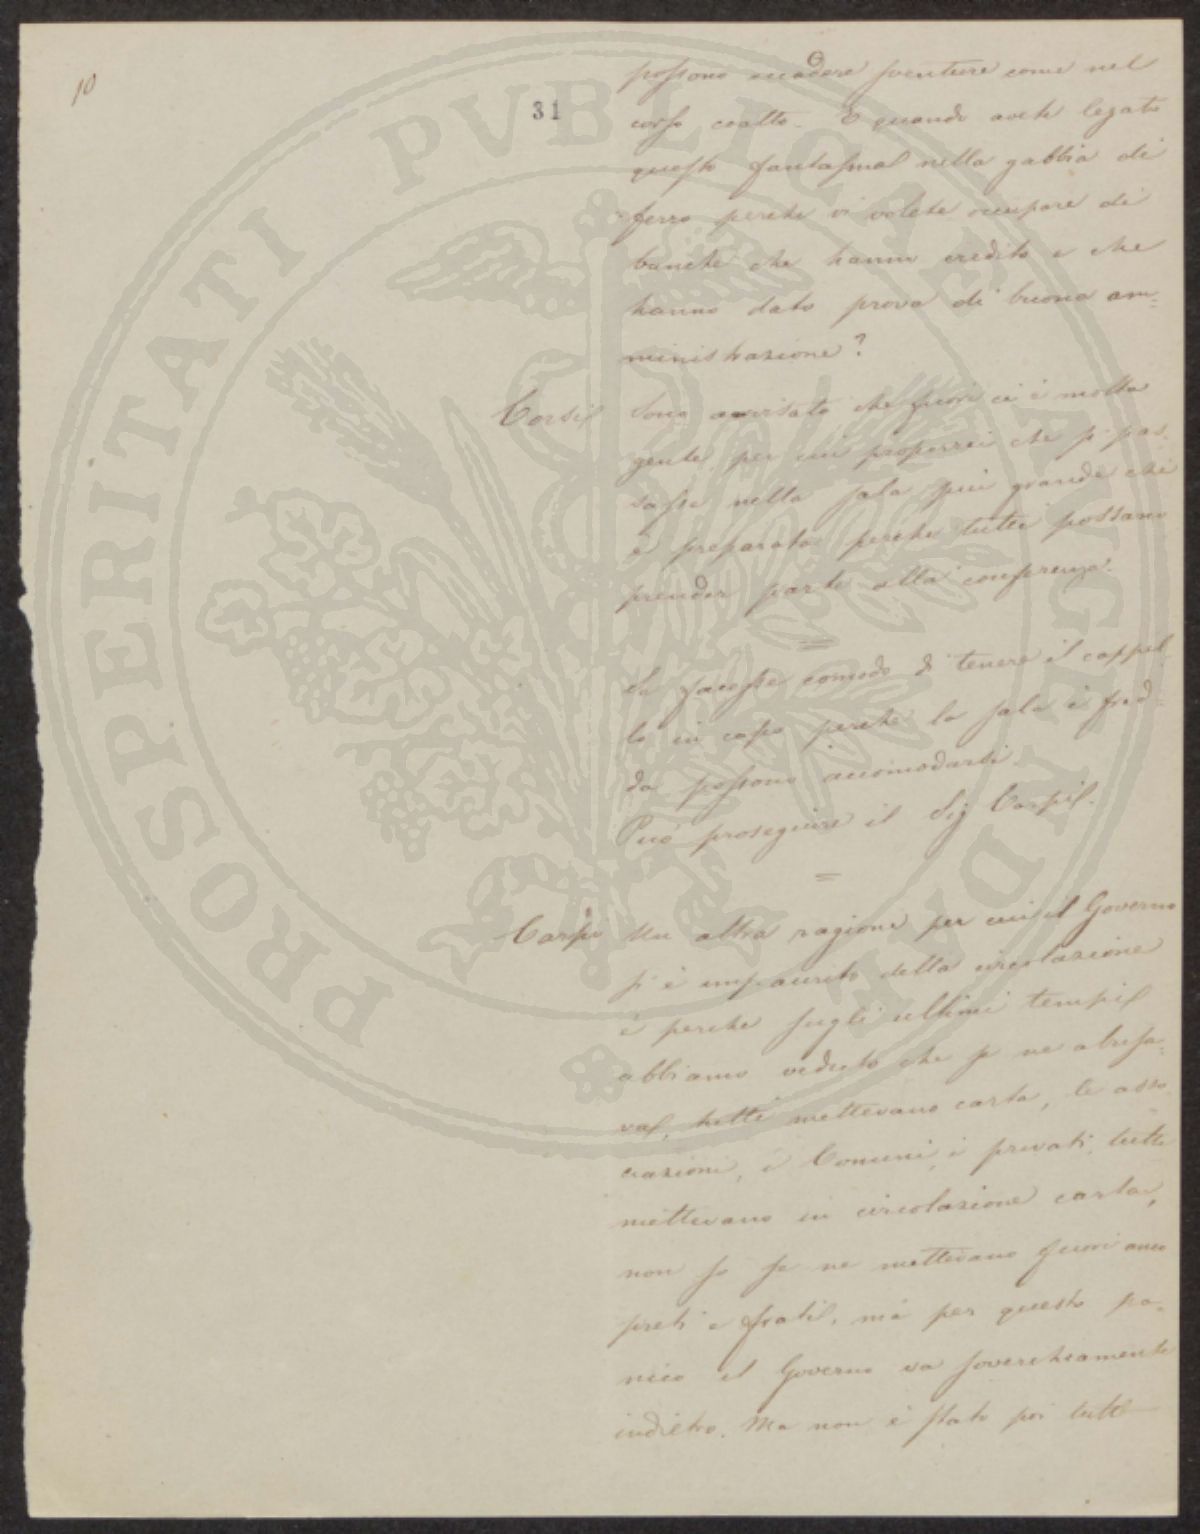 10
31
possono accadere sventure come nel
corso coatto. E quando avete legato
questo fantasma nella gabbia di
ferro perchè vi volete occupare di
banche che hanno credito e che
hanno dato prova di buona am=
ministrazione?
Corsi Sono avvisato che fuori ci è molta
gente per cui proporrei che si pas=
sasse nella sala più grande che
è preparata perchè tutti possano
prender parte alla conferenza.
=
Se facesse comodo di tenere il cappel=
lo in capo perchè la sala è fred=
da possono accomodarsi.
Può proseguire il Sig Carpi.
=
Carpi Un altra ragione per cui il Governo
si è impaurito della circolazione
è perchè sugli ultimi tempi
abbiamo veduto che se ne abusa=
va, tutti mettevano carta, le asso
ciazioni, i Comuni, i privati, tutti
mettevano in circolazione carta,
non so se ne mettevano fuori anco
preti e frati, ma per questo pa=
nico il Governo va soverchiamente
indietro. Ma non è stato poi tutt
PROSPERITATI PVBLICAE AVGENDAE